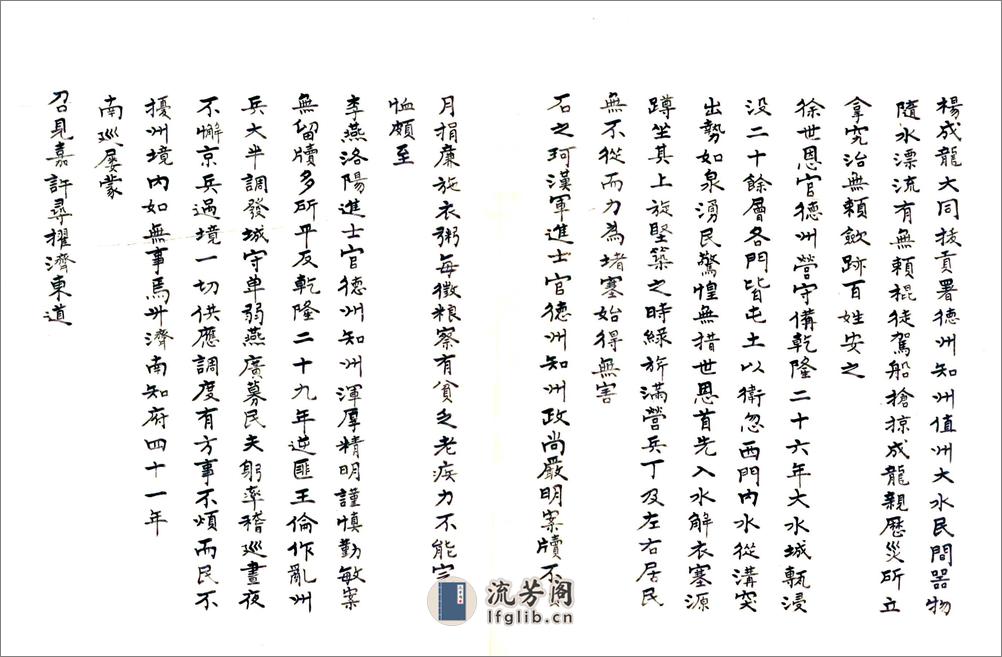 楊成龍大同拔貢署德州知州值州大水民間器物
隨水漂流有無賴棍徒駕船搶掠成龍親歷災所立
拿究治無賴歛跡百姓安之
徐世恩官德州營守備乾隆二十六年大水城甎浸
没二十餘層各門皆屯土以衛忽西門內水從溝突
出勢如泉湧民驚惶無措世恩首先入水解衣塞源
蹲坐其上旋堅築之時綠旂滿營兵丁及左右居民
無不從而力為堵塞始得無害
石之珂漢軍進士官德州知州政尚嚴明案牘不
月捐廉施衣粥每徵粮察有貧乏老疾力不能完
恤頗至
李燕洛陽進士官德州知州渾厚精明謹慎勤敏案
無留牘多所平反乾隆二十九年逆匪王倫作亂州
兵大半調發城守单弱燕廣募民夫躬率稽巡晝夜
不懈京兵過境一切供應調度有方事不煩而民不
擾州境內如無事焉升濟南知府四十一年
南巡屡蒙
召見嘉許尋擢濟東道
流芳阁
lfglib.cn